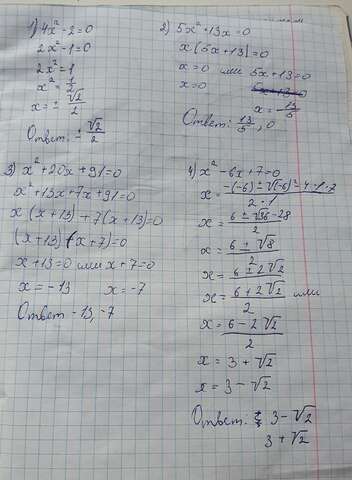 1) 4x² - 2 = 0
2x² - 1 = 0
2x² = 1
x² = 1/2
x = ± √2/2
Ответ: ± √2/2
2) 5x² + 13x = 0
x(5x + 13) = 0
x = 0 или 5x + 13 = 0
x = 0
x = -13/5
Ответ: 13/5, 0
3) x² + 20x + 91 = 0
x² + 13x + 7x + 91 = 0
x (x + 13) + 7(x + 13) = 0
(x + 13) (x + 7) = 0
x + 13 = 0 или x + 7 = 0
x = -13 x = -7
Ответ -13, -7
4) x² - 6x + 7 = 0
x = (-(-6) ± √(-6)² - 4·1·7) / (2·1)
x = (6 ± √36 - 28) / 2
x = (6 ± √8) / 2
x = (6 ± 2√2) / 2
x = (6 + 2√2) / 2 или
x = (6 - 2√2) / 2
x = 3 + √2
x = 3 - √2
Ответ. 3 - √2
3 + √2